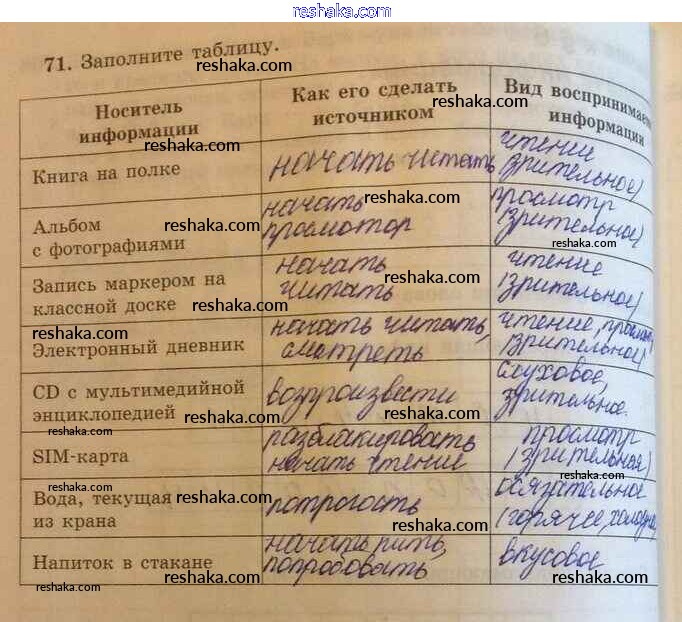 reshaka.com
71. Заполните таблицу.
reshaka.com
Носитель
информации
reshaka.com
Как его сделать
источником
reshaka.com
Вид воспринимаем
информации
reshaka.com
Книга на полке
начать читать
чтение
(зрительное)
Альбом
с фотографиями
reshaka.com
начать
reshaka.com
просмотор
просмотр
reshaka.com
(зрительное)
reshaka.com
Запись маркером на
классной доске
reshaka.com
начать
reshaka.com
читать
чтение
(зрительное)
reshaka.com
Электронный дневник
начать читать,
сматреть
reshaka.com
чтение, просм
(зрительное)
CD с мультимедийной
энциклопедией
reshaka.com
возпроизвести
reshaka.com
слуховое,
зрительное.
SIM-карта
reshaka.com
разблакировать
начать чтение
reshaka.com
просмотр
(зрительная)
reshaka.com
Вода, текущая
из крана
reshaka.com
потрогать
reshaka.com
осязательное
(горячее, холодн
Напиток в стакане
reshaka.com
reshaka.com
начать пить,
попробовать
reshaka.com
вкусовое
reshaka.com